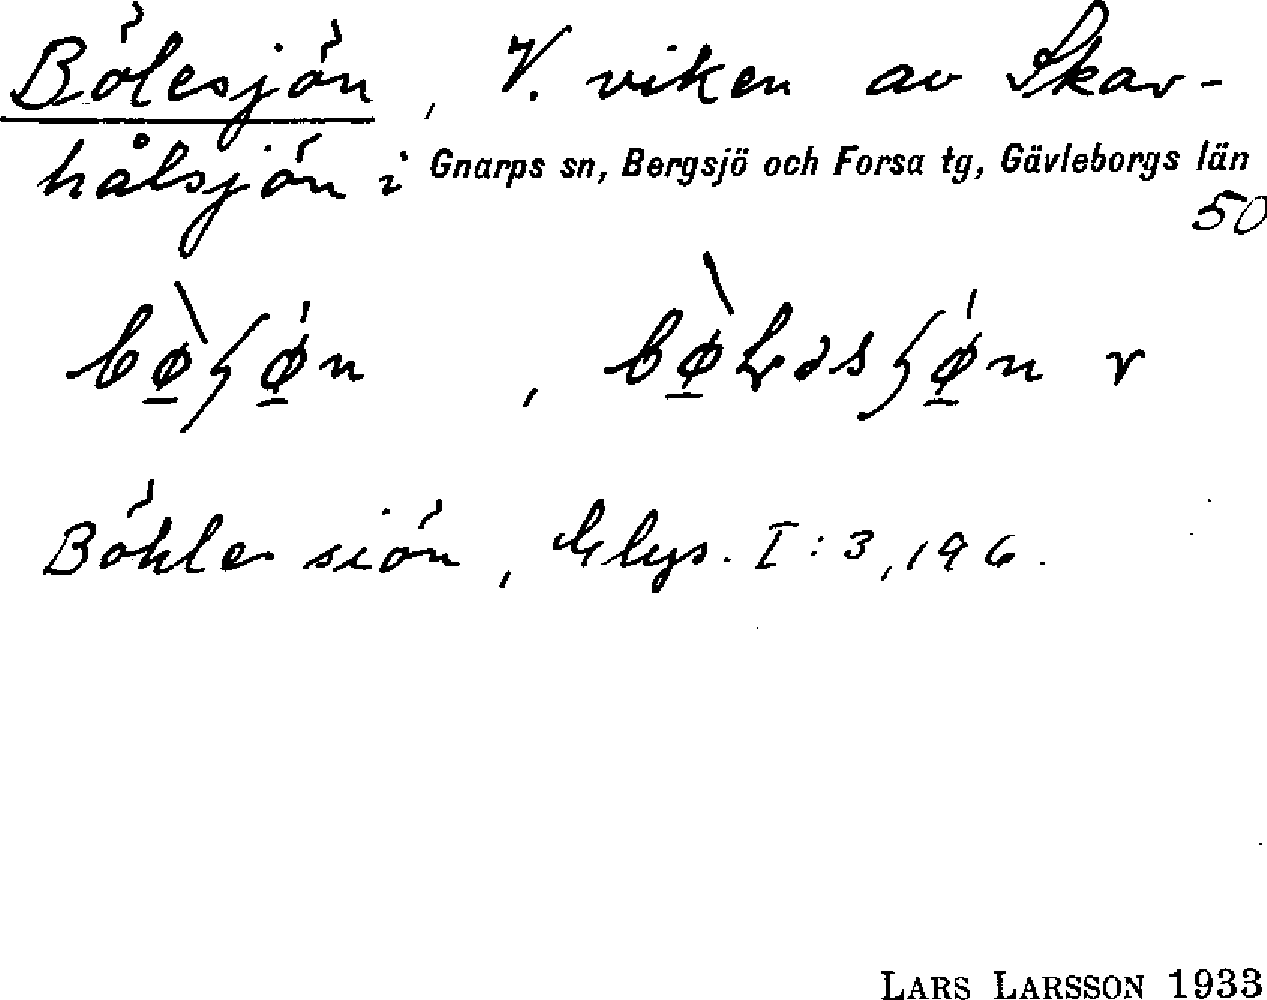 Bölesjön, V. viken av Skav-
hålsjön i Gnarps sn, Bergsjö och Forsa tg, Gävleborgs län
50
Böhle siön, Elgs. I:3,196.
LARS LARSSON 1933